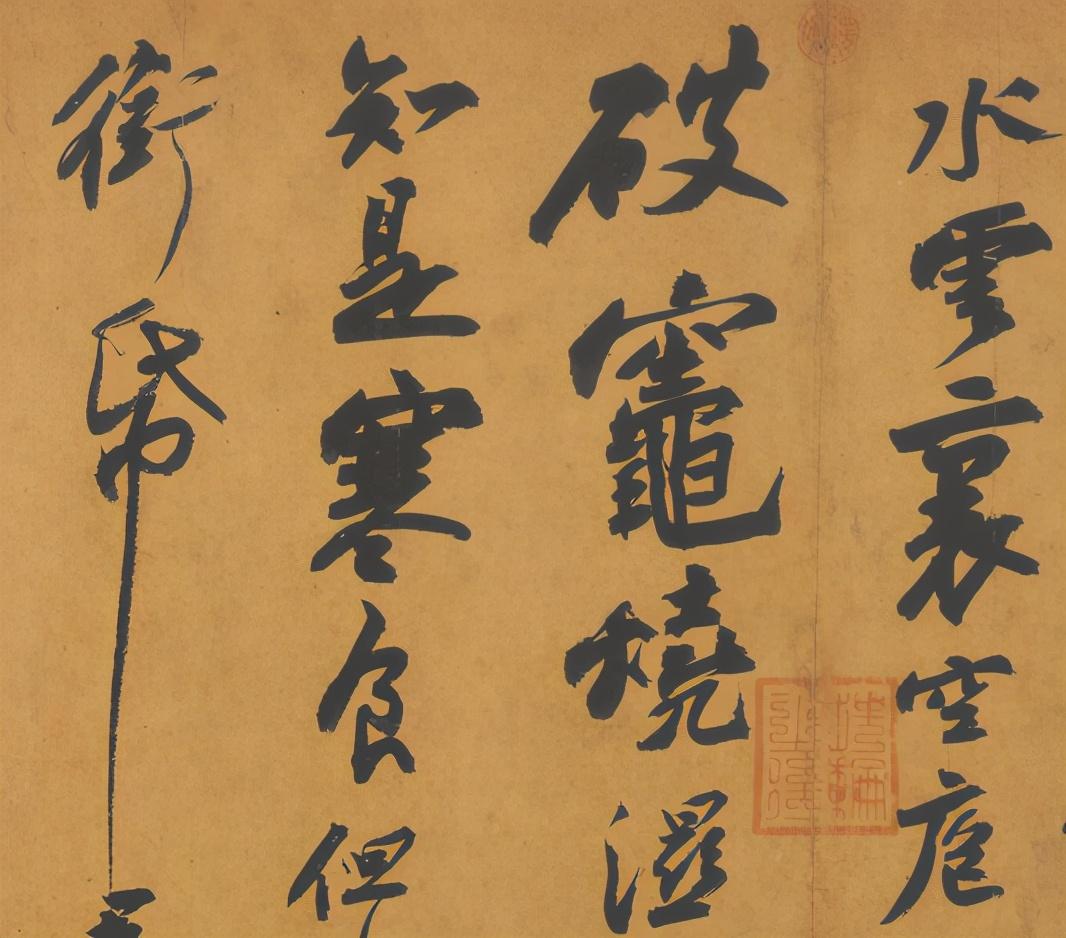 水雲裏空庖
破竈燒濕
知是寒食但
銜帋